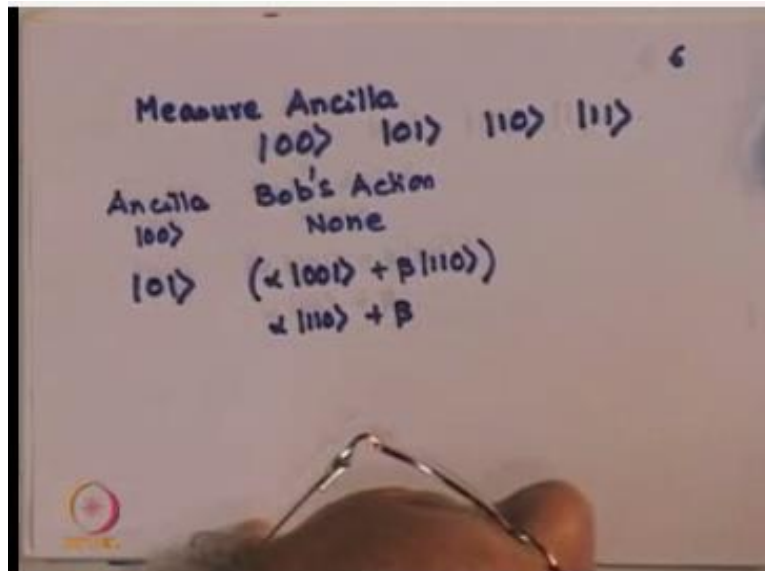 6
Measure Ancilla
|00⟩ |01⟩ |10⟩ |11⟩
Ancilla Bob's Action
|00⟩ None
|01⟩ (α|001⟩ + β|110⟩)
α|110⟩ + β